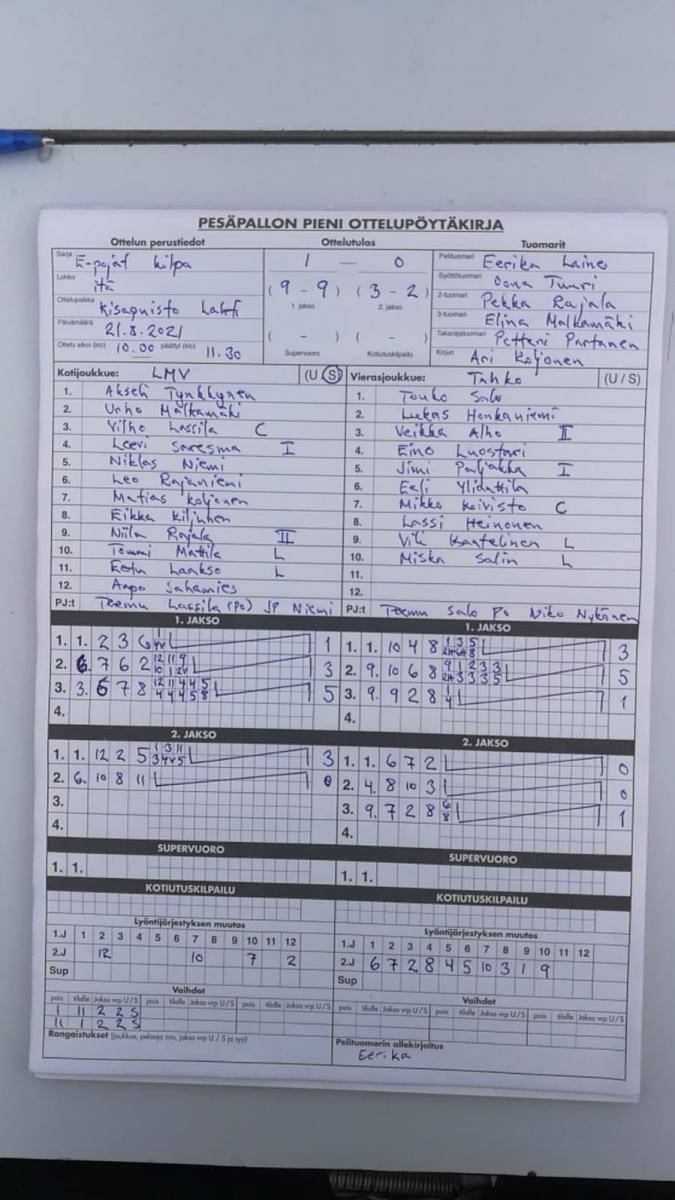 PESÄPALLON PIENI OTTELUPÖYTÄKIRJA
Ottelun perustiedot Ottelutulos Tuomarit
Sarja E-pojat kilpa
Lohko itä
Ottelupaikka Kisapuisto Lahti
Päivämäärä 21.8.2021
Ottelu alkoi (klo) 10.00 päättyi (klo) 11.30
1 — 0
(9 - 9) (3 - 2)
1. jakso 2. jakso
( - ) ( - )
Supervuoro Kotiutuskilpailu
Pelituomari Eerika Laine
Syöttötuomari Oona Tuuri
2-tuomari Pekka Rajala
3-tuomari Elina Malkamäki
Takarajatuomari Petteri Partanen
Kirjuri Ari Koljonen
Kotijoukkue: LMV (U/S)
1. Akseli Tynkkynen
2. Urho Malkamäki
3. Vilho Lassila C
4. Leevi Saresma I
5. Niklas Niemi
6. Leo Rajaniemi
7. Matias Koljonen
8. Eikka Kiljunen
9. Niila Rajala II
10. Tommi Mattila L
11. Eetu Laakso L
12. Aapo Sahamies
PJ:t Teemu Lassila (Po) JP Niemi
Vierasjoukkue: Tahko (U/S)
1. Touko Salo
2. Lukas Honkaniemi
3. Veikka Alho II
4. Eino Luostari
5. Jimi Paljakka I
6. Eeli
7. Mikko Koivisto C
8. Lassi Heinonen
9. Vili Kantelinen L
10. Miska Salin L
11.
12.
PJ:t Teemu Salo Po Niko Nykänen
1. JAKSO
1. 1. 2 3 6 1
2. 6. 7 6 2 3
3. 3. 6 7 8 5
4.
1. JAKSO
1. 1. 10 4 8 3
2. 9. 10 6 8 5
3. 9. 9 2 8 1
4.
2. JAKSO
1. 1. 12 2 5 3
2. 6. 10 8 11 0
3.
4.
2. JAKSO
1. 1. 6 7 2 0
2. 4. 8 10 3 0
3. 9. 7 2 8 1
4.
SUPERVUORO
1. 1.
SUPERVUORO
1. 1.
KOTIUTUSKILPAILU
KOTIUTUSKILPAILU
Lyöntijärjestyksen muutos
1.J 1 2 3 4 5 6 7 8 9 10 11 12
2.J 12 10 7 2
Sup
Lyöntijärjestyksen muutos
1.J 1 2 3 4 5 6 7 8 9 10 11 12
2.J 6 7 2 8 4 5 10 3 1 9
Sup
Vaihdot
pois tilalle Jakso vrp U/S pois tilalle Jakso vrp U/S pois tilalle Jakso vrp U/S
1 11 2 2 S
11 2 2 S
Rangaistukset (joukkue, pelaaja nro, jakso vrp U / S ja syy)
Vaihdot
pois tilalle Jakso vrp U/S pois tilalle Jakso vrp U/S pois tilalle Jakso vrp U/S
Pelituomarin allekirjoitus
Eerika